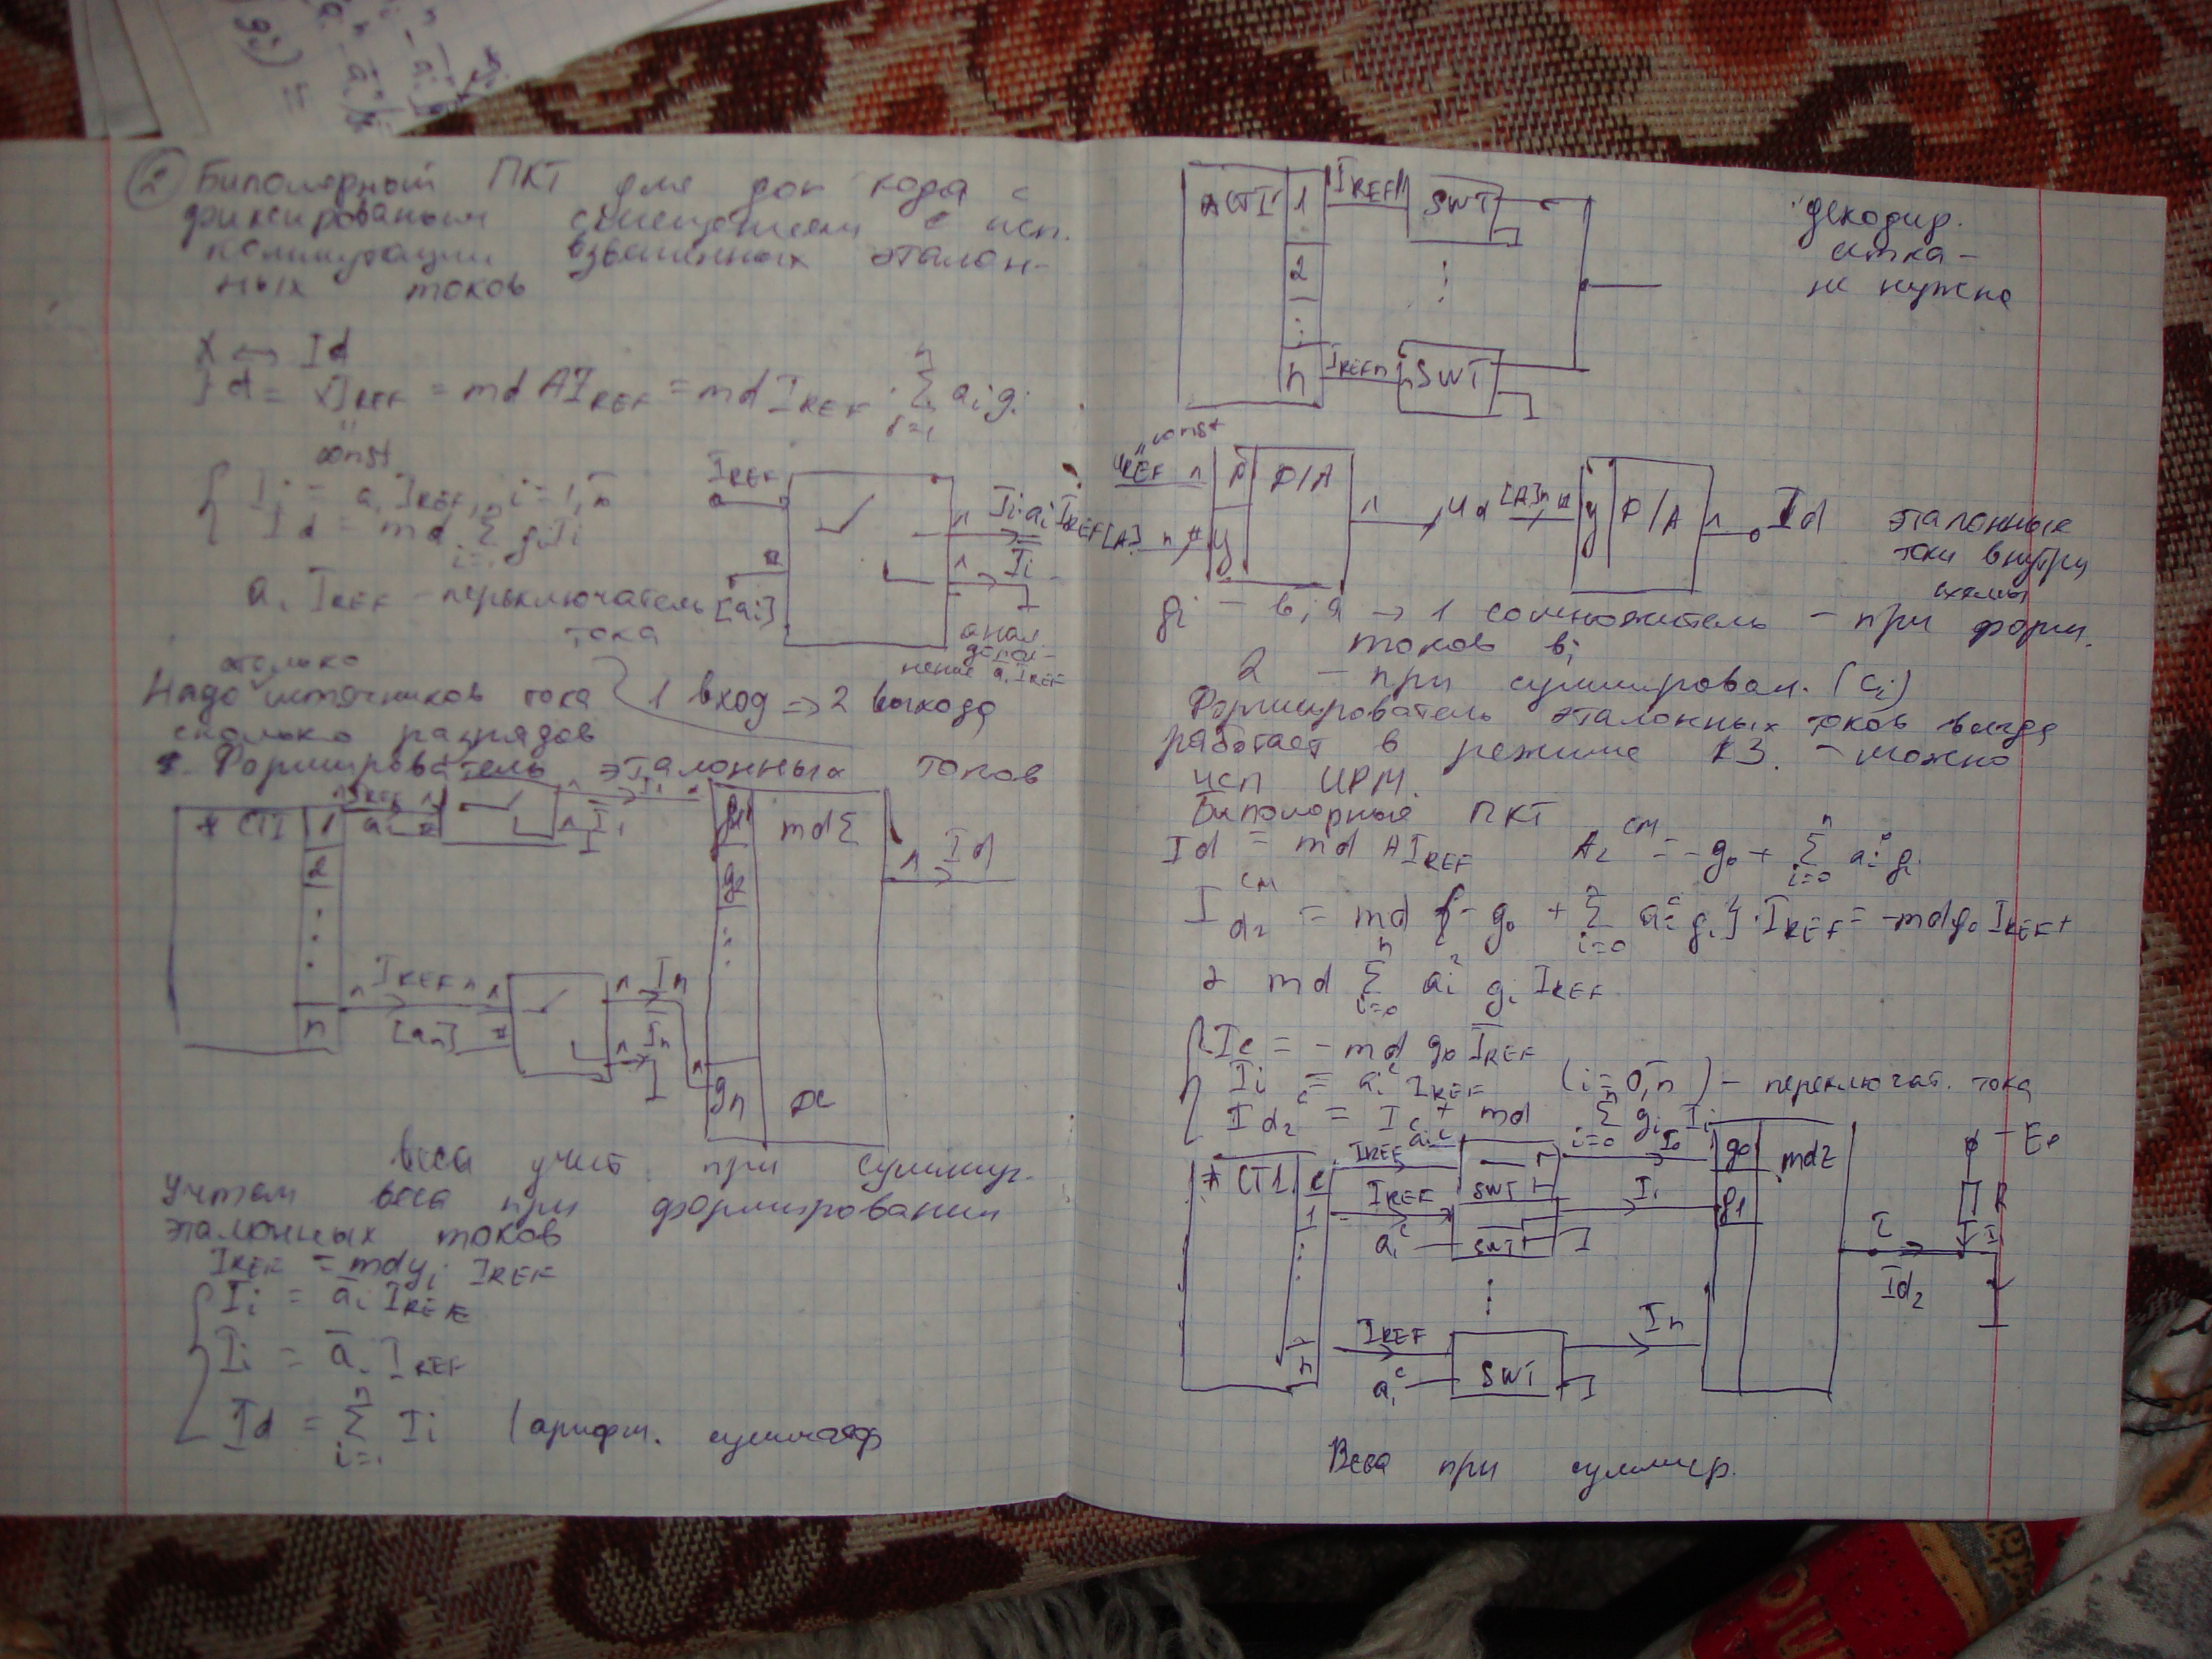 ② Биполярный ПКТ для доп кода с
фиксированым смещением с исп.
коммутации взвешенных эталон-
ных токов
X ↔ Id
Id = XI_REF = md AI_REF = md I_REF · Σ a_i g_i
const
I_i = a_i I_REF, i = 1, n
Id = md Σ g_i I_i
a_i I_REF – переключатель
тока
I_REF
[a_i]
I_i = a_i I_REF
I_i
столько
Надо источников тока
сколько разрядов
1 вход => 2 выхода
Формирователь эталонных токов
* СТI 1
2
n
I_REF
I_1
I_REF n
[a_n]
I_n
I_n
g_1
g_2
g_n
mdΣ
Id
веса учит. при суммир.
Учтем веса при формировании
эталонных токов
I_REF = mdg_i I_REF
I_i = a_i I_REF
I_i = a_i I_REF
Id = Σ I_i (арифм. сумматор
* СТI 1
2
n
I_REF1
SWT
I_REFn
SWT
декодир.
сетка –
не нужна
const
U_REF
D/A
[A]
U_d
[A]
D/A
Id
эталонные
токи внутри
схемы
g_i – b_i → 1 сомножитель – при форм.
токов b_i
2 – при суммирован. (c_i)
Формирователь эталонных токов всегда
работает в режиме КЗ. – можно
исп ИРМ.
Биполярные ПКТ
Id = md AI_REF A_2^см = -g_0 + Σ a_i^c g_i
I_d2^см = md {-g_0 + Σ a_i^c g_i} · I_REF = -mdg_0 I_REF +
+ md Σ a_i^c g_i I_REF
I_c = - md g_0 I_REF
I_i = a_i^c I_REF (i = 0, n) – переключат. тока
I_d2^c = I_c + md Σ g_i I_i
* СТI
1
n
I_REF
SWT
I_0
I_REF
a_1^c
SWT
I_1
I_REF
SWT
I_n
g_0
g_1
mdΣ
E_0
R
I
I_d2
Веса при суммир.